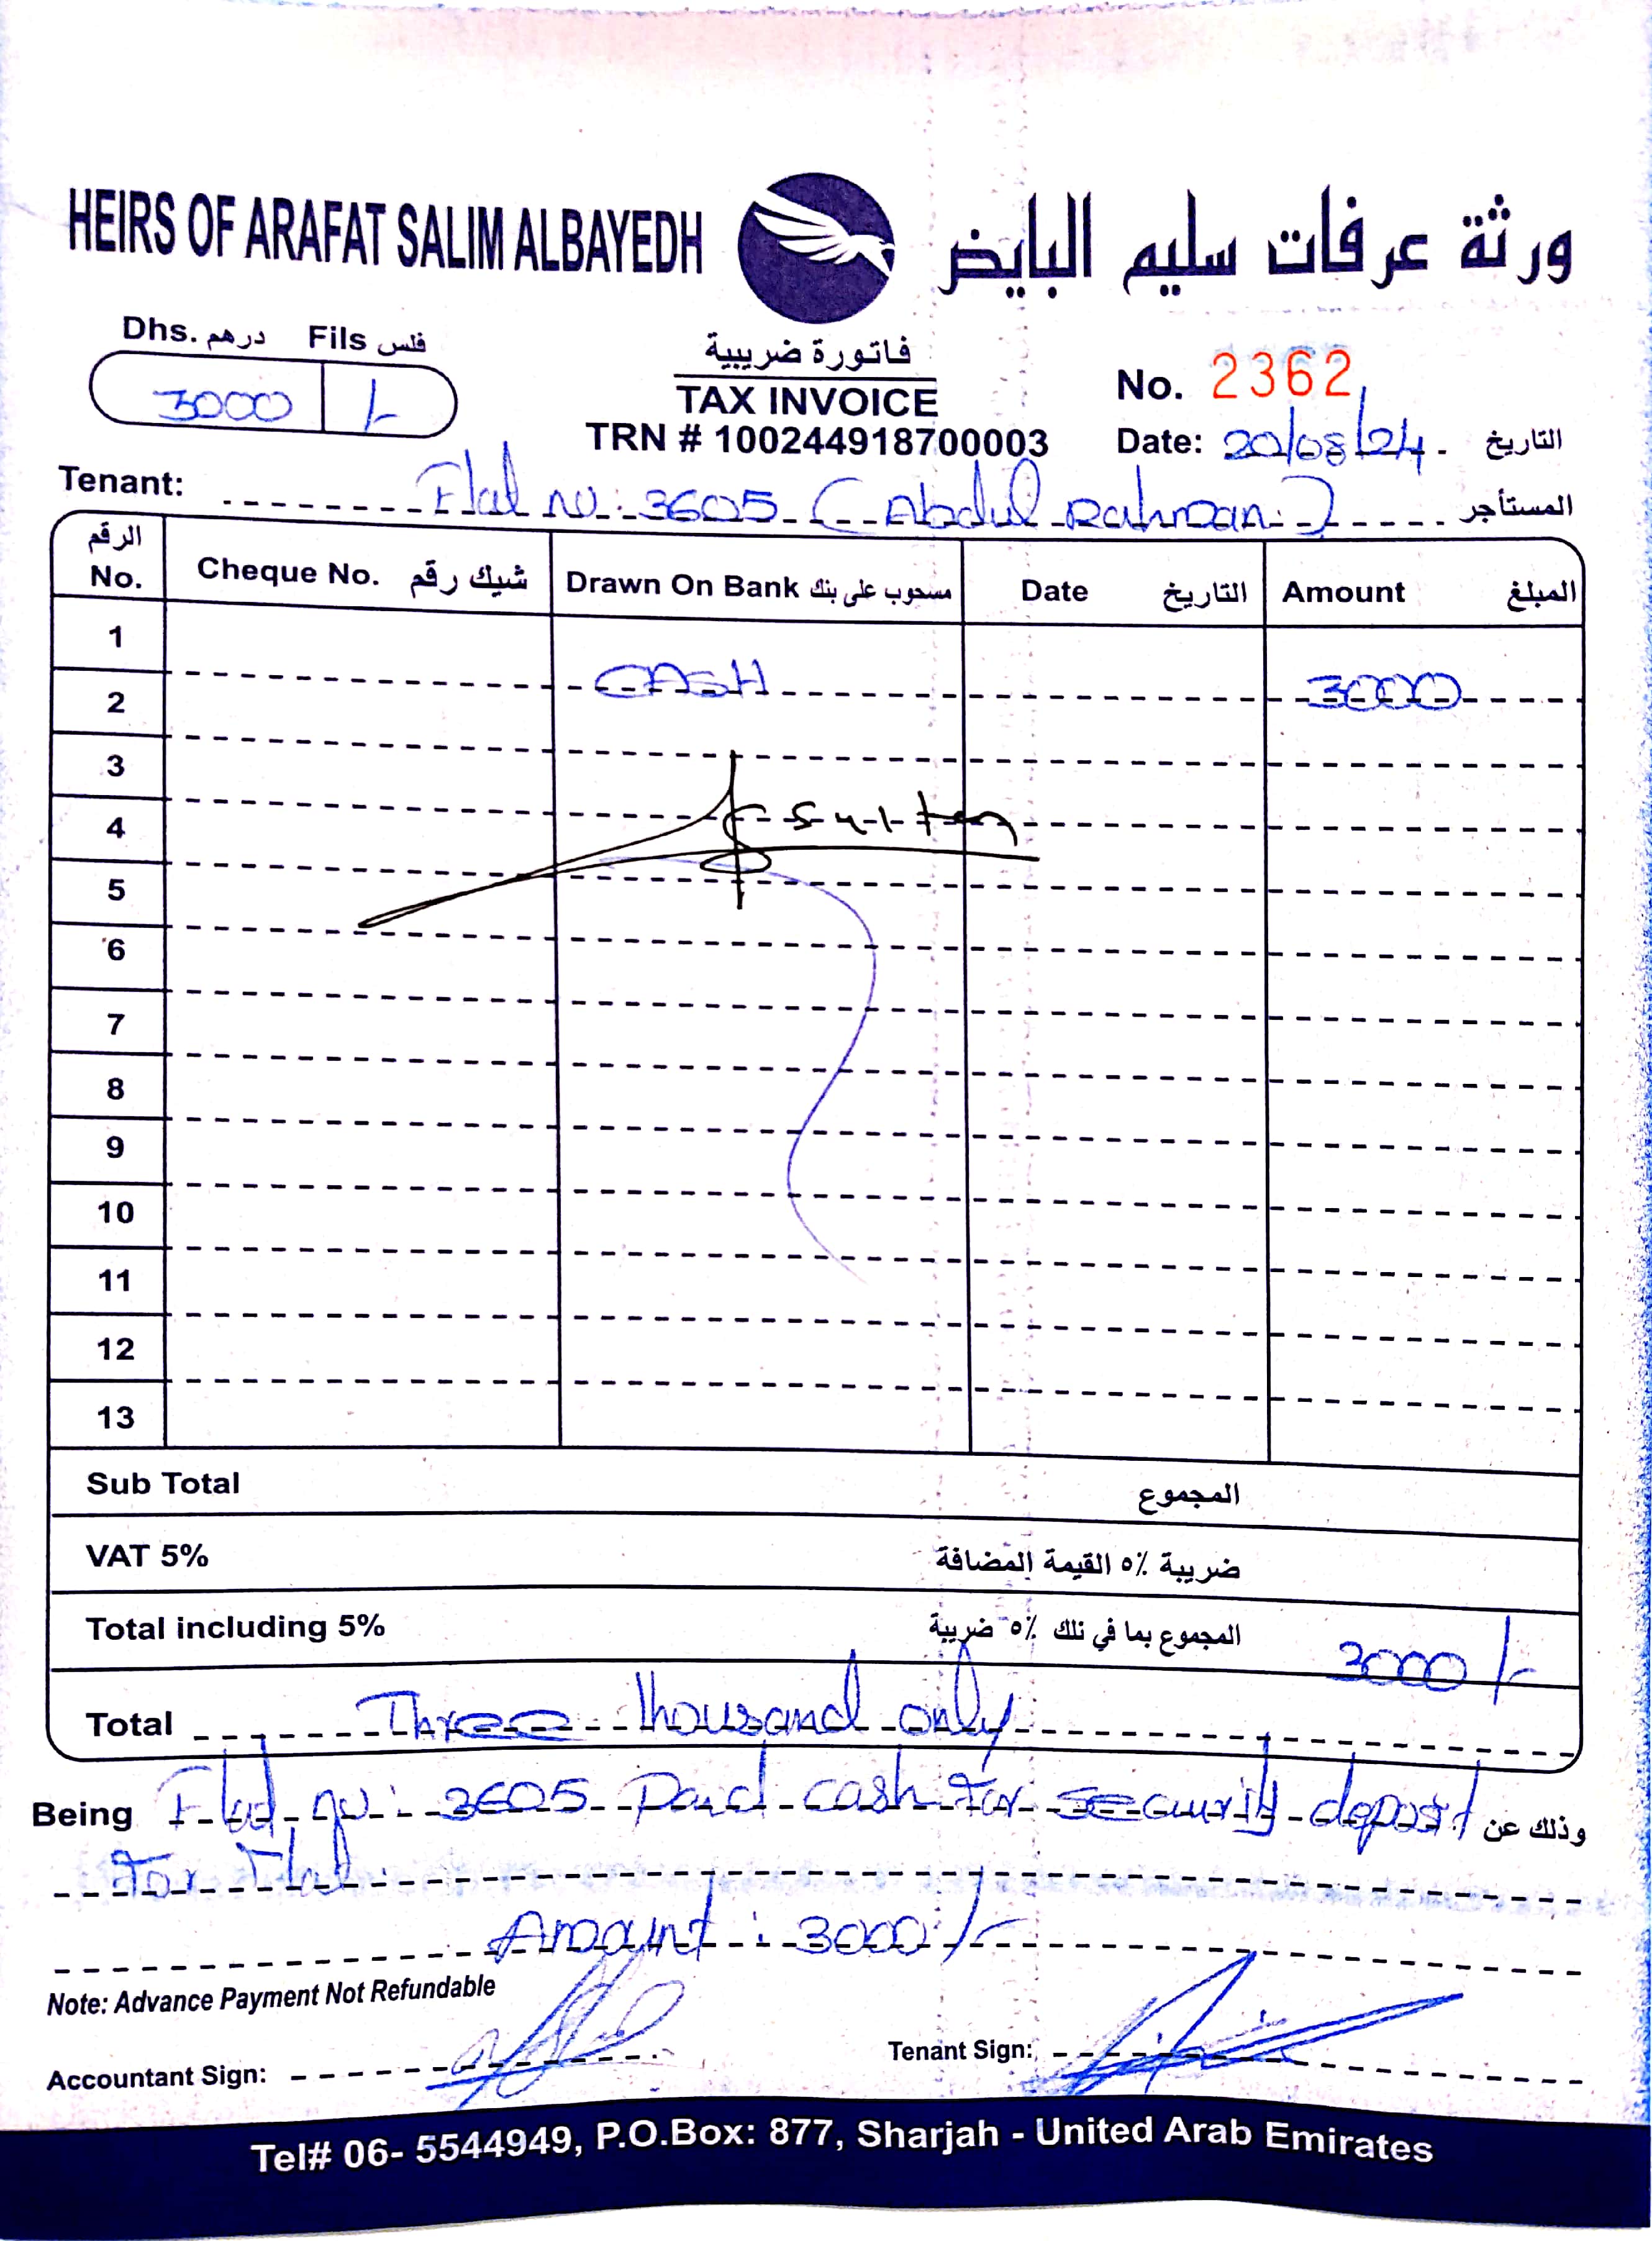 HEIRS OF ARAFAT SALIM ALBAYEDH ورثة عرفات سليم البايض
Dhs. درهم Fils فلس
3000 /-
فاتورة ضريبية
TAX INVOICE
TRN # 100244918700003
No. 2362
Date: 20/08/24 التاريخ
Tenant: Flat no: 3605 (Abdul Rahman) المستأجر
الرقم No. Cheque No. شيك رقم Drawn On Bank مسحوب على بنك Date التاريخ Amount المبلغ
1
2 CASH 3000
3
4 Sultan
5
6
7
8
9
10
11
12
13
Sub Total المجموع
VAT 5% ضريبة ٥٪ القيمة المضافة
Total including 5% المجموع بما في ذلك ٥٪ ضريبة 3000/-
Total Three thousand only
Being Flat no: 3605 Paid cash for security deposit وذلك عن
for flat.
Amount: 3000/-
Note: Advance Payment Not Refundable
Accountant Sign: Tenant Sign:
Tel# 06- 5544949, P.O.Box: 877, Sharjah - United Arab Emirates